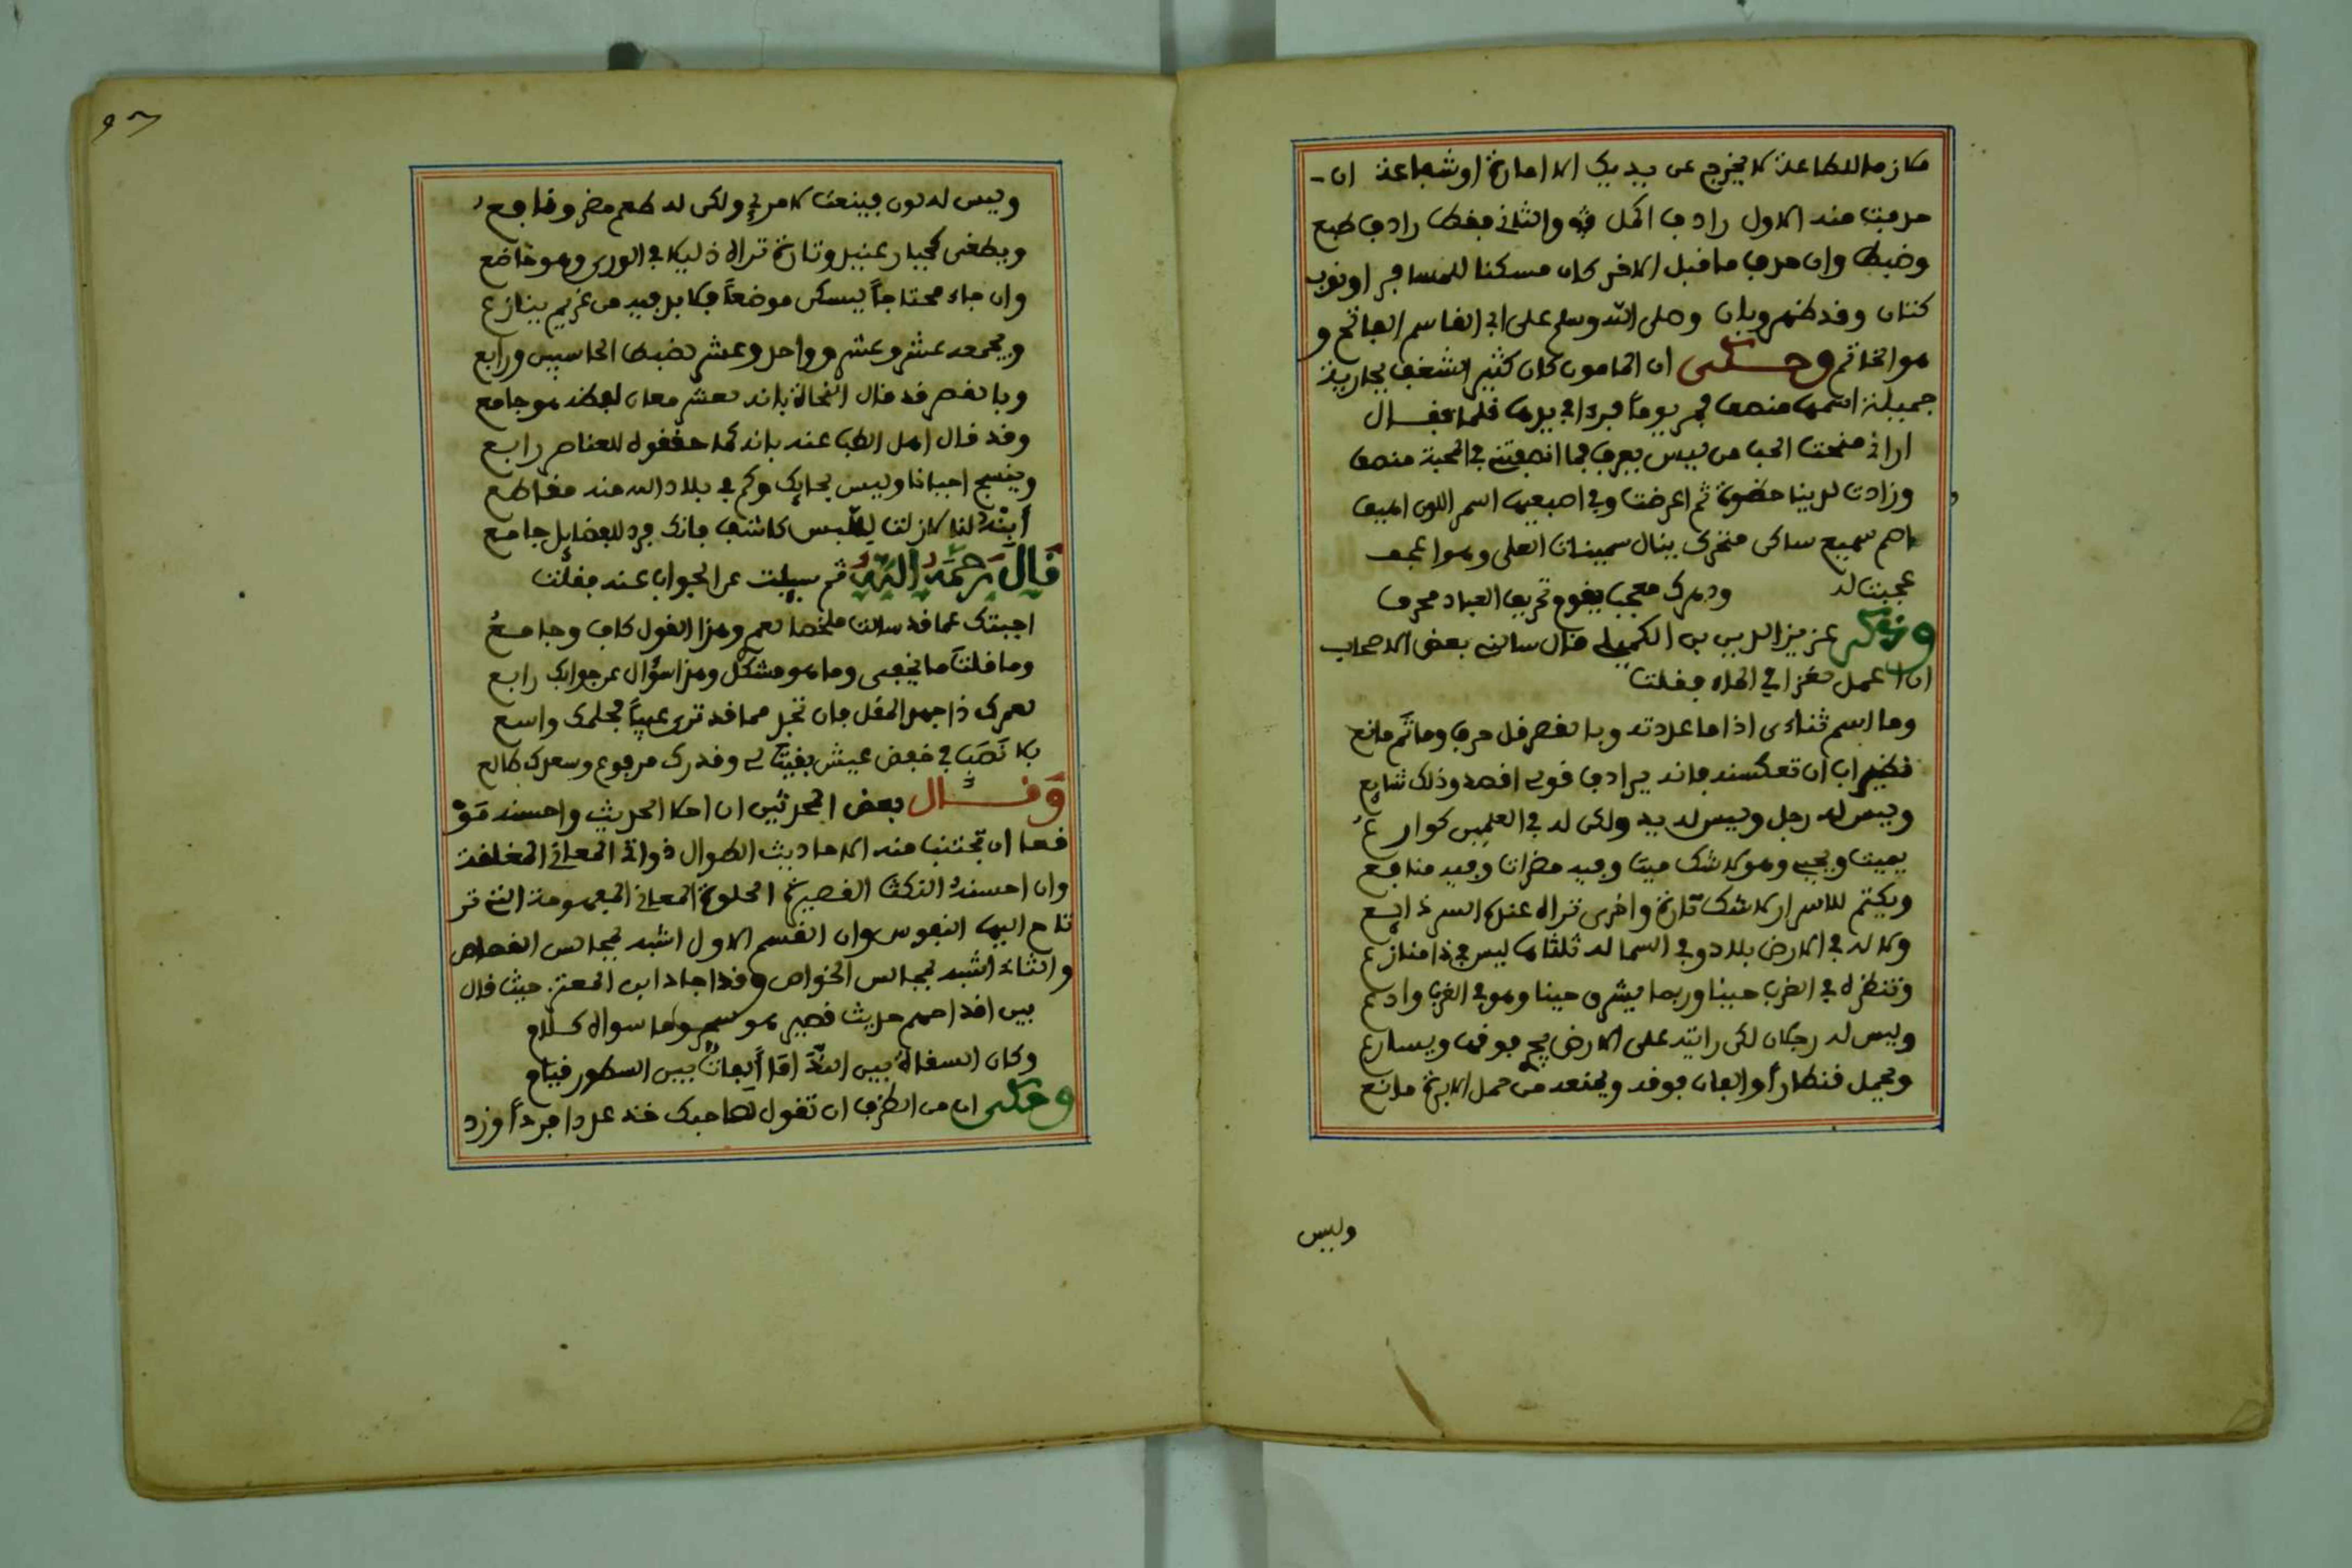 مكان ما للطاعة لا يخرج عن يديك الا امارة او شجاعة ان
حرفت منه الاول رادف اكل فيه والثاني فقط رادف طبع
وضبط وان حرف ما قبل الاخر كان مسكنا للمسافر او ثوب
كتان وقد ظهر وبان وصلى الله وسلم على ابي القاسم الفاتح و
هو الخاتم وحكى ان المامون كان كثير الشغف بجارية
جميلة اسمها منصف يوما في يدها فلما فقال
اراني منحت الحب من ليس يعرف فما انصفتني في المحبة منصف
وزادت لدينا حضوة ثم اعرضت وفي اصبعيها اسمر اللون اهيف
اصم سميع ساكن متحرك ينال سمينات العلى وهو اعجف
عجبت له ودهرك معجب يقوم تحريف العباد محرف
وذكر عزيز الدين بن الكميلي قال سالني بعض الاصحاب
ان اعمل لغزا في الماء فقلت
وما اسم ثناءى اذا ما عددته وبالقصر قل حرف وما ثم مانع
نظير اب ان تعكسنه فانه يرادف قولي اقصد وذلك شايع
وليس له رجل وليس له يد ولكن له في العلمين كوارع
يميت ويحيي وهو لا شك ميت وفيه مضرات وفيه منافع
ويكتم للاسرار لا شك تارة واخرى تراه عنده السر ذايع
وكم له في الارض بلاد وفي السما له ثلثاها ليس في ذا منازع
وتنظره في الغرب حينا وربما يشرق حينا وهو في الغرب وادع
وليس له رجلان لكن رايته على الارض يجري فوقها ويسارع
ويحمل قنطارا والفان فوقه ويمنعه من حمل الابرة مانع
وليس
وليس له لون فينعت لامرئ ولكن له طعم مضر ونافع
ويطغى كجبار عنيد وتارة تراه ذليلا في الورى وهو خاضع
وان جاء محتاجا ليسكن موضعا فلا بل فيه من غريم ينازع
ويجمعه عشر وعشر وواحد وعشر لضبط الحاسبين ورابع
وبالقصر قد قال النحاة بانه لعشر معان لفظه هو جامع
وقد قال اهل الطب عنه بانه كما حققوه للعناصر رابع
وينسج احيانا وليس بحايك وكم في بلاد الله منه مقاطع
أبنه لنا لا زلت للبس كاشفا فانك فرد للفضايل جامع
قال رحمه الله ثم سيلت عن الجواب عنه فقلت
اجبتك عما قد سالت ملخصا نعم وهذا القول كاف وجامع
وما قلت ما يخفى وما هو مشكل وهذا سؤال عن جوابك رابع
لعمرك ذا جهد المقل فان تجد مما قد ترى عيبا فحلمك واسع
بلا نصب في خفض عيش بقيت لي وقدرك مرفوع وسعدك طالع
وقال بعض المحدثين ان احلا الحديث واحسنه موْ
قعا ان تجتنب منه الاحاديث الطوال ذوات المعاني المغلقة
وان احسنه النكث القصيرة الحلوة المعاني المفهومة التي تر
تاح اليها النفوس وان القسم الاول اشبه بمجالس القصاص
والثاني اشبه بمجالس الخواص وقد اجاد ابن المعتز حيث قال
بين اقداحهم حديث قصير هو سحر وما سواه كلام
وكان السقاة بين الندامى ألفات بين السطور قيام
وحكي ان من الظرف ان تقول لصاحبك خذ عددا فردا وزد